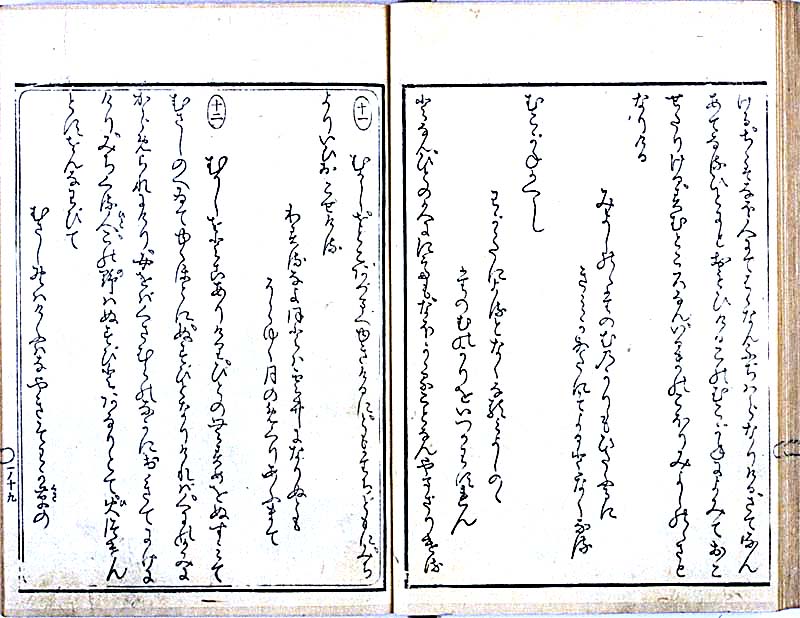 けるちゝはなほ人にてはゝなんふぢはらなりけるさてなん
あてなるひとにとおもひけるこのむこがねによみておこ
せたりけるすむところなんいるまのこほりみよしのゝさと
なりける
みよしのゝたのむのかりもひたふるに
きみがかたにぞよるとなくなる
むこがねかへし
わがかたによるとなくなるみよしのゝ
たのむのかりをいつかわすれん
となんひとのくにゝてもなほかゝることなんやまざりける
十一 むかしをとこあづまへゆきけるにともだちどもにみち
よりいひおこせける
わするなよほどは雲井になりぬとも
そらゆく月のめぐりあふまで
十二 むかしをとこありけりひとのむすめをぬすみて
むさしのへゐてゆくほどにぬすびとなりければくにのかみに
からめられにけり女をばくさむらのなかにおきてにげに
けりみちくるひとこの野はぬすびとあなりとて火つけん
とすをんなわびて
むさし野はけふはなやきそわか草の
一ノ十九